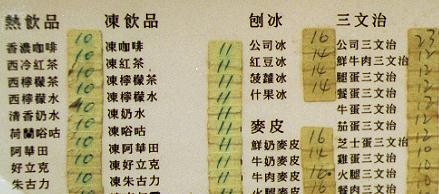 熱飲品
香濃咖啡 10
西冷紅茶 10
西檸檬茶 10
西檸檬水 10
清香奶水 10
荷蘭㗎咕 10
阿華田 10
好立克 10
朱古力 10
凍飲品
凍咖啡 11
凍紅茶 11
凍檸檬茶 11
凍檸檬水 11
凍奶水 11
凍㗎咕 11
凍阿華田 11
凍好立克 11
凍朱古力 11
刨冰
公司冰 16
紅豆冰 14
菠蘿冰 14
什果冰 14
麥皮
鮮奶麥皮 16
牛奶麥皮 14
牛肉麥皮 16
火腿麥皮
三文治
公司三文治 23
鮮牛肉三文治 12
腿蛋三文治 12
餐蛋三文治
牛蛋三文治
茄蛋三文治
芝士蛋三文治
雞蛋三文治 10
火腿三文治
餐肉三文治